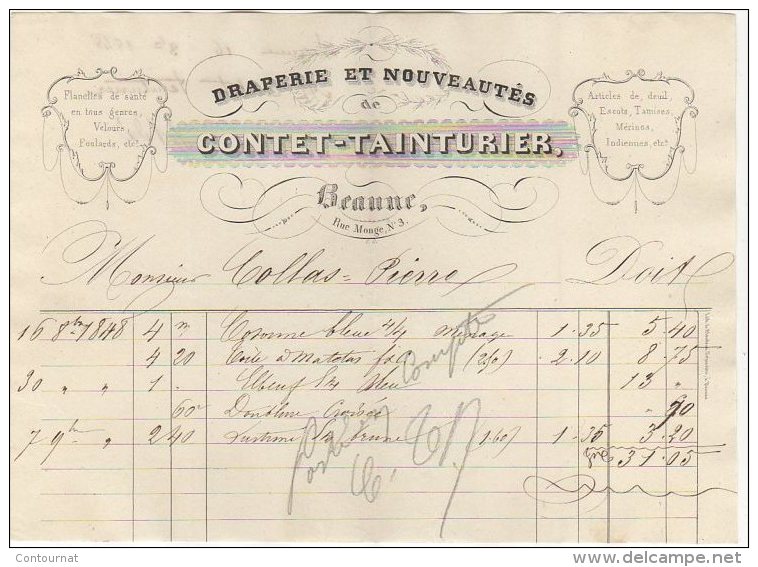 DRAPERIE ET NOUVEAUTÉS
de
CONTET-TAINTURIER,
Beaune,
Rue Monge, N° 3.
Flanelles de santé
en tous genres,
Velours,
Foulards, etc.
Articles de deuil,
Escots, Tamises,
Mérinos,
Indiennes, etc.
Monsieur Collas=Pierre Doit
16 8bre 1848 4 m bleue 4/4 Ménage 1.35 5.40
4 20 (2/0) 2.10 8.75
30 " " 1 . Elbeuf bleu 13 "
60c Doublure Croisée " 70
7 9bre " 2 40 brune (1.60) 1.35 3.20
31.05
Compte
Contournat
www.delcampe.net